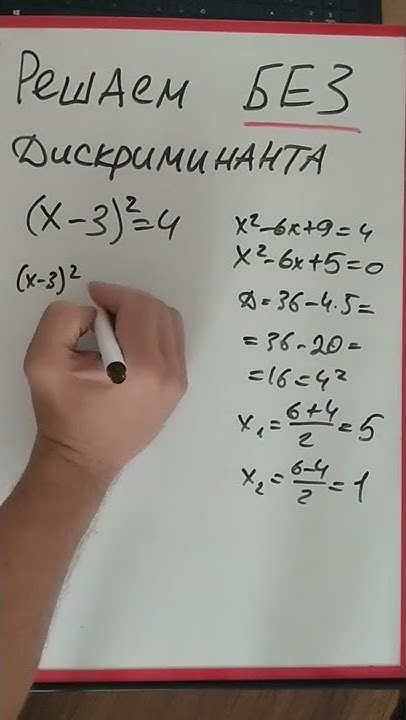 Решаем БЕЗ
Дискриминанта
(x-3)²=4
(x-3)²
x²-6x+9=4
x²-6x+5=0
D=36-4·5=
=36-20=
=16=4²
x₁=\frac{6+4}{2}=5
x₂=\frac{6-4}{2}=1